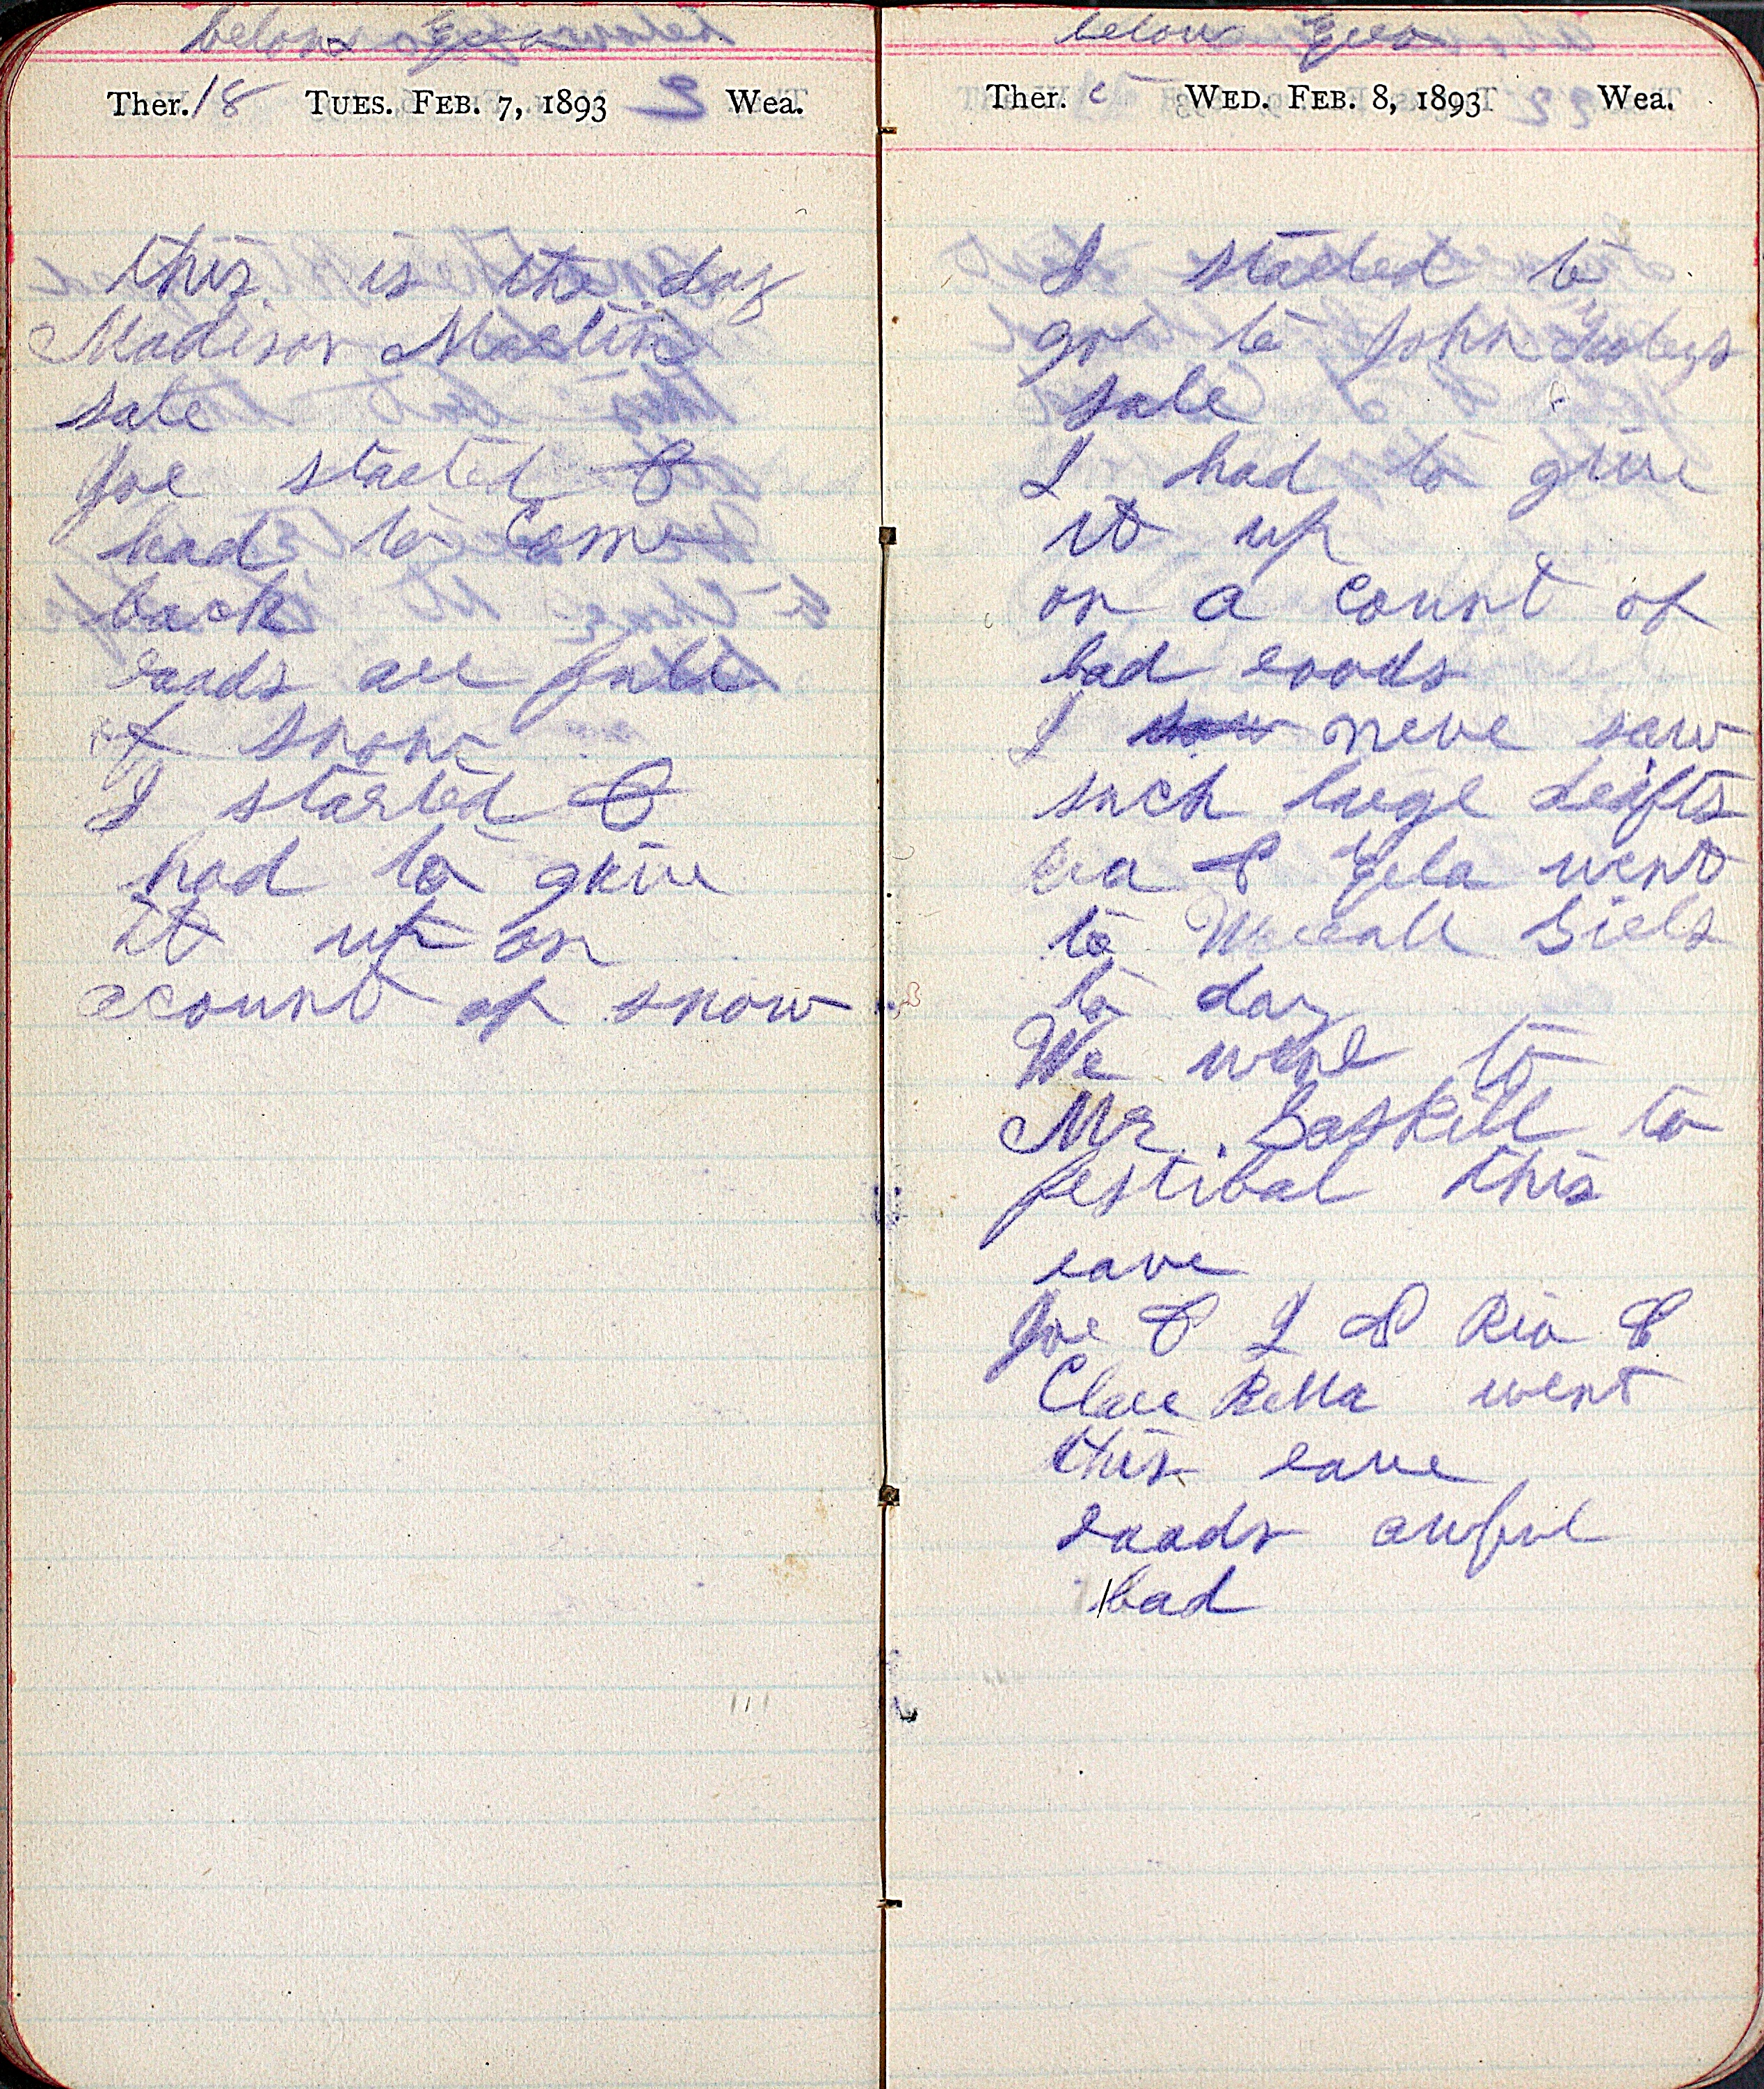 below Zero
Ther. 18 TUES. FEB. 7, 1893 Wea.
this is the day
Madison Mastin
sale
Joe started &
had to Come
back
roads are full
of snow
I started &
had to give
it up on
acount of snow
below Zero
Ther. WED. FEB. 8, 1893 Wea.
I started to
go to John
sale
I had to give
it up
on a count of
bad roods
I saw neve saw
such large drifts
& went
to
to day
We went to
Mr. Baskill to
festibal this
eave
Joe & I & Ria &
Clare Bella went
this eave
roads awful
bad